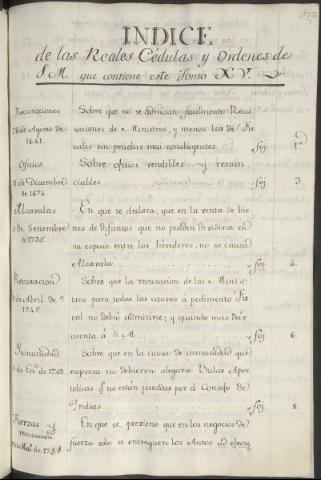 INDICE
de las Reales Cédulas y Ordenes de
S. M. que contiene este Tomo XV.
Recusaciones
de Agosto de
1641.
Sobre que no se admitan facilmente Recu
saciones de Ministros, y menos las de Fis
cales sin pruebas mui concluyentes foj 1
Oficios
de Diciembre
de 1674
Sobre oficios vendibles y renun
ciables foj 3
Alcavala
de Setiembre
de 1735
En que se declara, que en la venta de bie
nes de difuntos que no pueden dividirse en
su especie entre los Herederos, no se causa
Alcavala foj 4
Recusacion
de Abril de
1745
Sobre que la recusacion de los Minis
tros para todas las causas á pedimento Fis
cal no debió admitirse; y quando mas dár
cuenta á S. M. foj 6
Inmunidad
de En.º de 1749
Sobre que en la causa de inmunidad que
expresa no debieron alegarse Bulas Apos
tolicas q.e no están pasadas por el Consejo de
Indias foj 8
Fuerzas y
recusacion
de 1751
En que se previene que en los negocios de
fuerza solo se entreguen los Autos